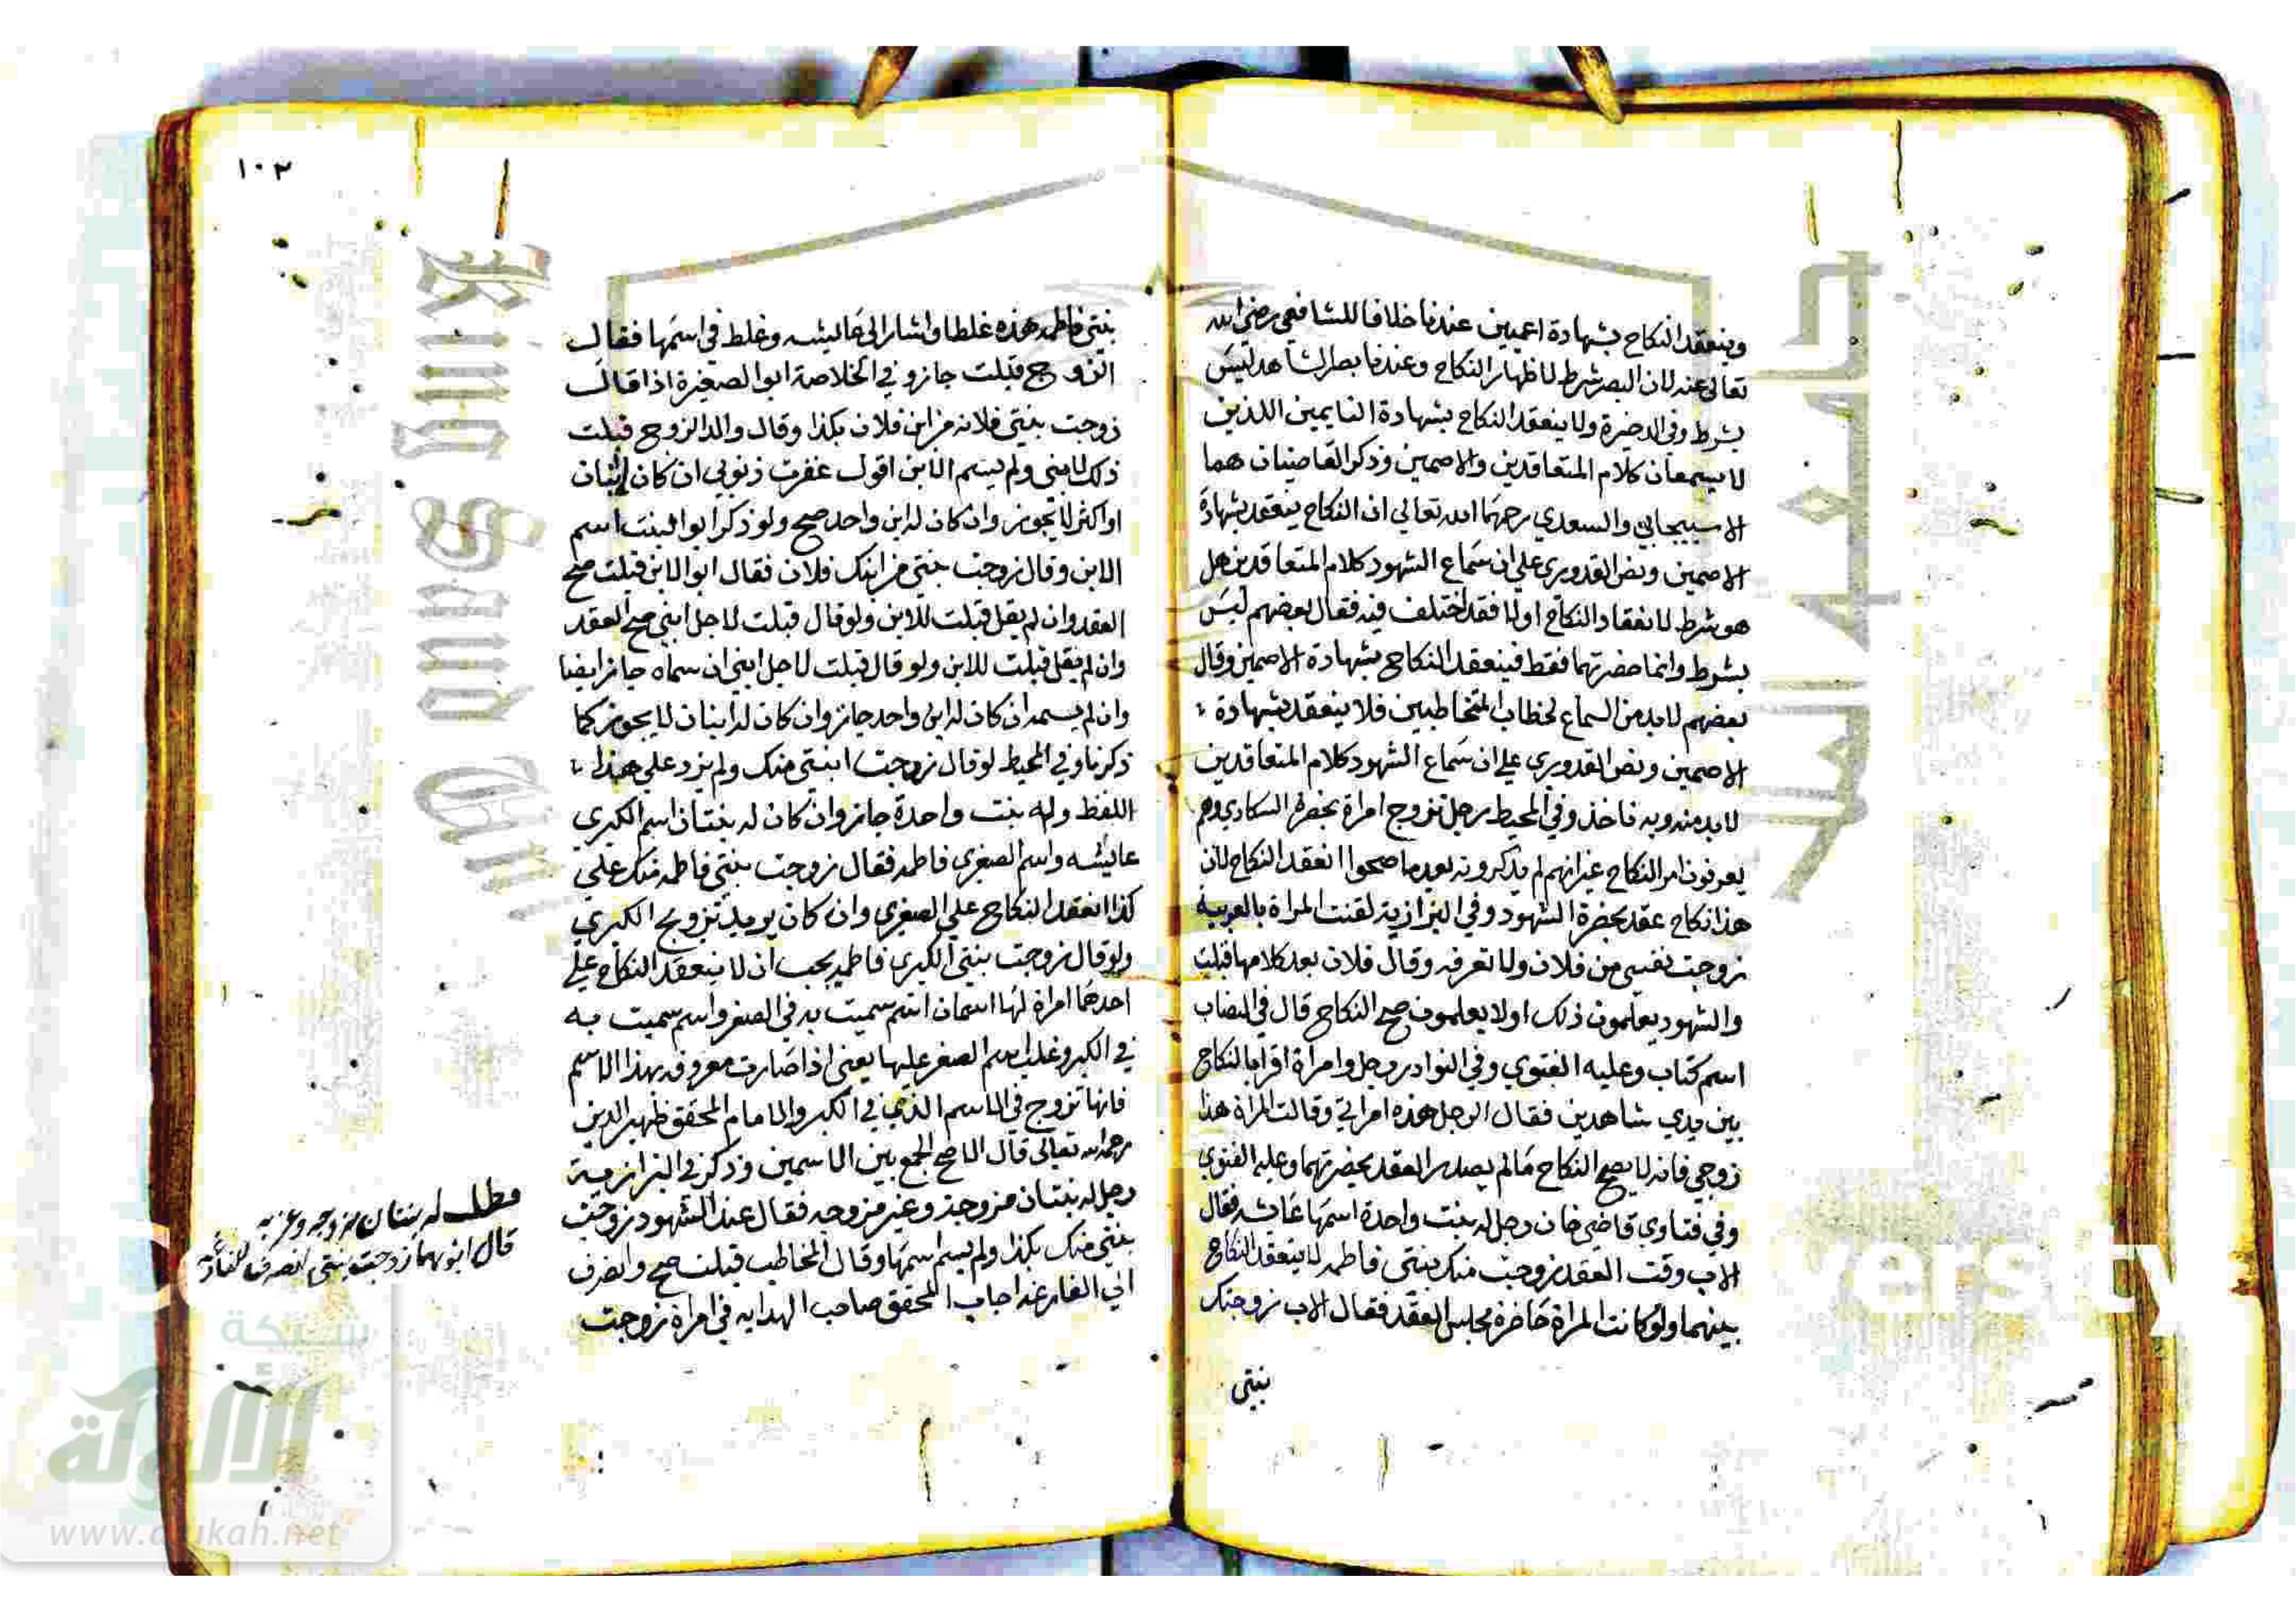 وينعقد النكاح بشهادة اعميين عندنا خلافا للشافعي رضي الله
تعالى عنه لان البصر شرط لاظهار النكاح وعندنا بصر الشاهد ليس
بشرط وفي الدخيرة ولا ينعقد النكاح بشهادة النايمين اللذين
لا يسمعان كلام المتعاقدين والاصمين وذكر القاضيان هما
الاسبيجابي والسعدي رحمهما الله تعالى ان النكاح ينعقد بشهادة
الاصمين ونص القدوري على ان سماع الشهود كلام المتعاقدين هل
هو شرط لانعقاد النكاح اولا فقد اختلف فيه فقال بعضهم ليس
بشرط وانما حضرتهما فقط فينعقد النكاح بشهادة الاصمين وقال
بعضهم لا بد من السماع لخطاب المتخاطبين فلا ينعقد بشهادة
الاصمين ونص القدوري على ان سماع الشهود كلام المتعاقدين
لا بد منه وبه ناخذ وفي المحيط رجل تزوج امراة بحضرة السكارى وهم
يعرفون امر النكاح غير انهم لم يذكرونه بعد ما صحوا انعقد النكاح لان
هذا نكاح عقد بحضرة الشهود وفي البزازية لقنت المراة بالعربية
زوجت نفسي من فلان ولا تعرفه وقال فلان بعد كلامها قبلت
والشهود يعلمون ذلك اولا يعلمون صح النكاح قال في النصاب
اسم كتاب وعليه الفتوي وفي النوادر رجل وامراة اقرا بالنكاح
بين يدي شاهدين فقال الرجل هذه امراتي وقالت المراة هذا
زوجي فانه لا يصح النكاح مالم يصدر العقد بحضرتهما وعليه الفتوي
وفي فتاوي قاضي خان رجل له بنت واحدة اسمها عائشه فقال
الاب وقت العقد زوجت منك بنتي فاطمه لا ينعقد النكاح
بينهما ولو كانت المراة حاضرة مجلس العقد فقال الاب زوجتك
بنتي
١٠٢
بنتي فاطمه هذه غلطا واشار الى عاليشه وغلط في اسمها فقال
الزوج قبلت جاز وفي الخلاصة ابوا الصغيرة اذا قال
زوجت بنتي فلانه من ابن فلان بكذا وقال والد الزوج قبلت
ذلك لابني ولم يسم الابن اقول غفرت ذنوبي ان كان اثنان
او اكثر لا يجوز وان كان له ابن واحد صح ولو ذكر ابو البنت اسم
الابن وقال زوجت بنتي من ابنك فلان فقال ابو الابن قبلت صح
العقد وان لم يقل قبلت للابن ولو قال قبلت لاجل ابني صح العقد
وان لم يقل قبلت للابن ولو قال قبلت لاجل ابني ان سماه جاز ايضا
وان لم يسمه ان كان له ابن واحد جاز وان كان له ابنان لا يجوز كما
ذكرنا وفي المحيط لو قال زوجت ابنتي منك ولم يزد على هذا
اللفظ وله بنت واحدة جاز وان كان له بنتان اسم الكبري
عاليشه واسم الصغري فاطمه فقال زوجت بنتي فاطمه منك علي
كذا انعقد النكاح علي الصغري وان كان يريد تزويج الكبري
ولو قال زوجت بنتي الكبري فاطمه يجب ان لا ينعقد النكاح علي
احدهما امراة لها اسمان اسم سميت به في الصغر واسم سميت به
في الكبر وغلب اسم الصغر عليها يعني اذا صارت معروفه بهذا الاسم
فانها تزوج في الاسم الذي في الكبر والامام المحقق ظهير الدين
رحمه الله تعالى قال الاصح الجمع بين الاسمين وذكر في البزازية
رجل له بنتان مزوجة وغير مزوجه فقال عند الشهود زوجت
بنتي منك بكذا ولم يسم اسمها وقال المخاطب قبلت صح وانصرف
الي الفارغه اجاب المحقق صاحب الهدايه في امراة زوجت
مطلب له بنتان مزوجه وعزبه
قال ابوهما زوجت بنتي انصرف
شبكة
الألوكة
www.alukah.net
جامعة الملك
King Saud
University